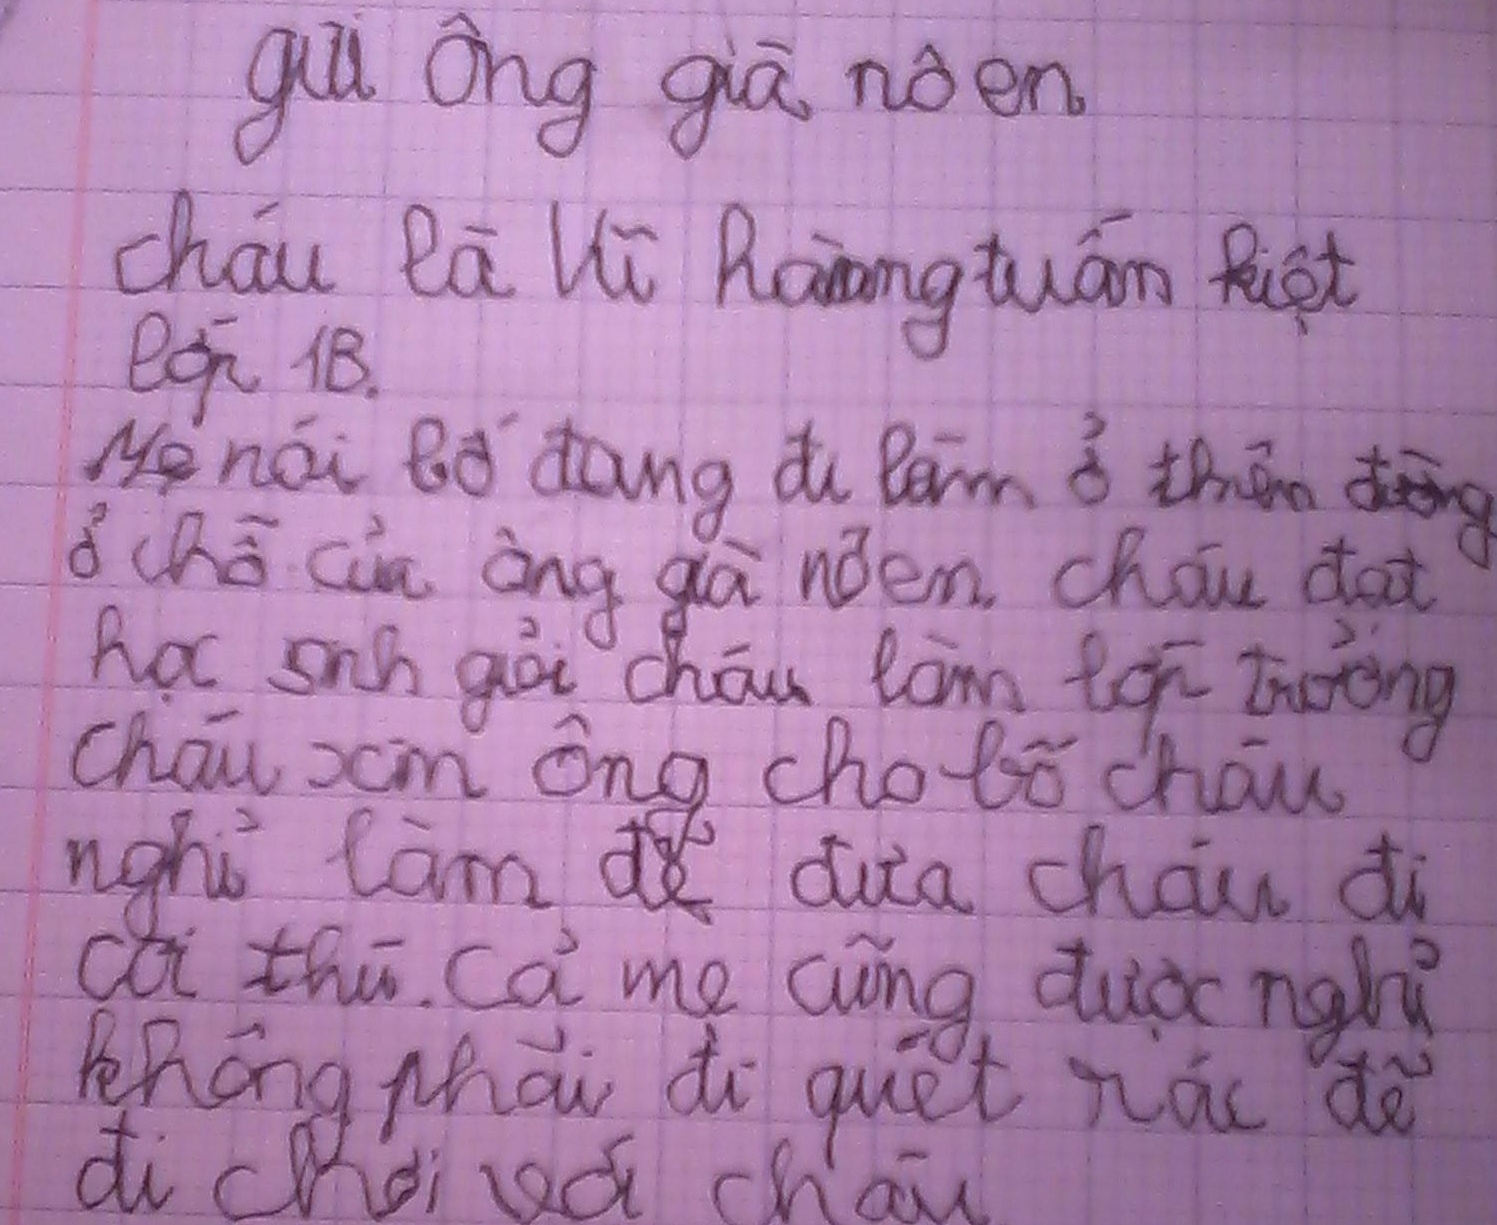 gửi ông già nô en
cháu là Vũ hoàng tuấn kiệt
lớp 1B.
Mẹ nói bố đang đi làm ở thiên đường
ở chỗ của ông già nô en cháu đạt
học sinh giỏi cháu làm lớp trưởng
cháu xin ông cho bố cháu
nghỉ làm để đưa cháu đi
coi thú. Cả mẹ cũng được nghỉ
không phải đi quét rác để
đi chơi với cháu